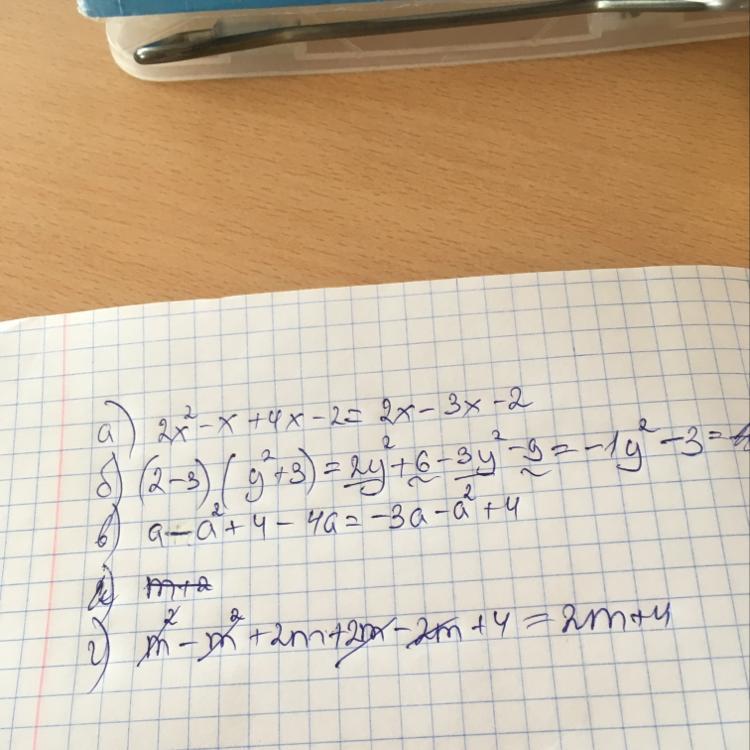 а) 2x² - x + 4x - 2 = 2x - 3x - 2
б) (2 - 3)(y² + 3) = 2y² + 6 - 3y² - 9 = -1y² - 3 =
в) a - a² + 4 - 4a = -3a - a² + 4
m+2
г) m² - m² + 2m + 2m - 2m + 4 = 2m + 4